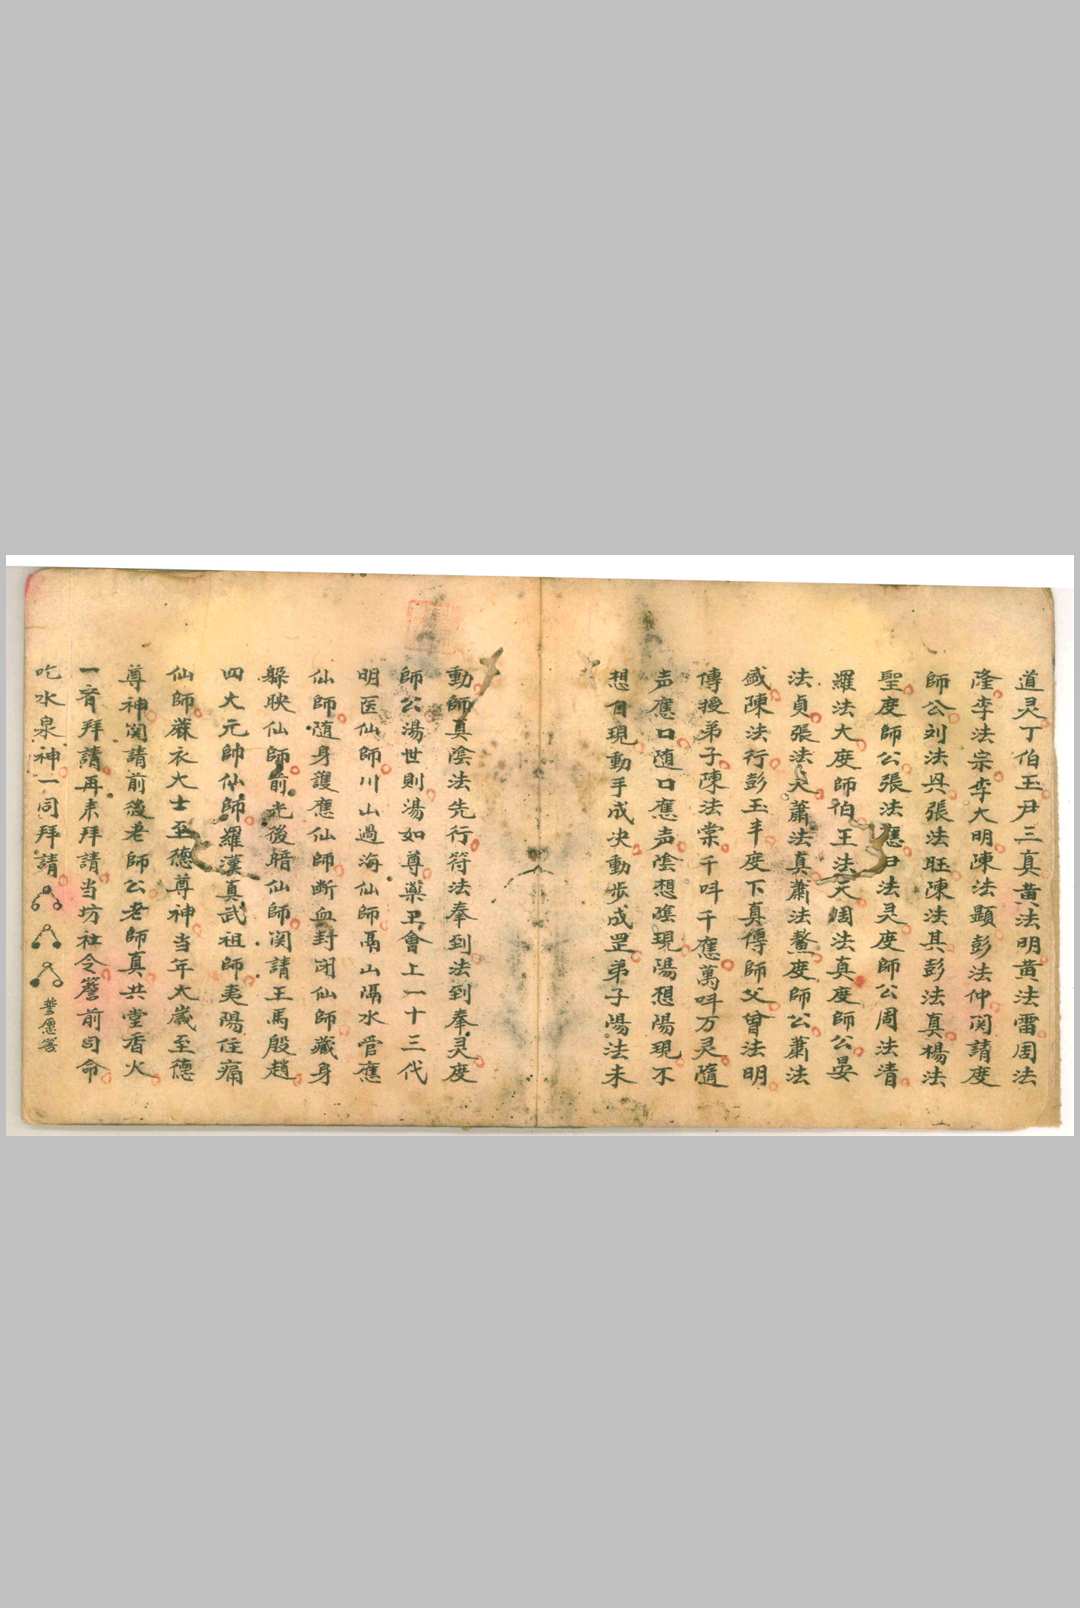 道灵丁伯玉尹三真黄法明黄法雷周法
隆李法宗李大明陳法顯彭法仲関請度
師公刘法吳張法旺陳法其彭法真楊法
聖度師公張法應尹法灵度師公周法清
羅法大度師伯王法天周法真度師公晏
法貞張法天蕭法真蕭法鰲度師公蕭法
盛陳法行彭玉丰度下真傳師父曾法明
傳授弟子陳法棠千呌千應萬呌万灵隨
声應口随口應声陰想陰現陽想陽現不
想自現動手成决動步成罡弟子陽法未
動師真陰法先行符法奉到法到奉灵度
師公湯世則湯如尊藥王會上一十三代
明医仙師川山過海仙師鬲山隔水管應
仙師随身護應仙師断血封闭仙師藏身
躲映仙師前光後暗仙師関請王馬殷趙
四大元帥仙師羅漢真武祖師夷陽住痛
仙師蔴衣大士至德尊神当年太歲至德
尊神関請前後老師公老師真共堂香火
一音拜請再来拜請当坊社令簷前司命
吃水泉神一同拜請